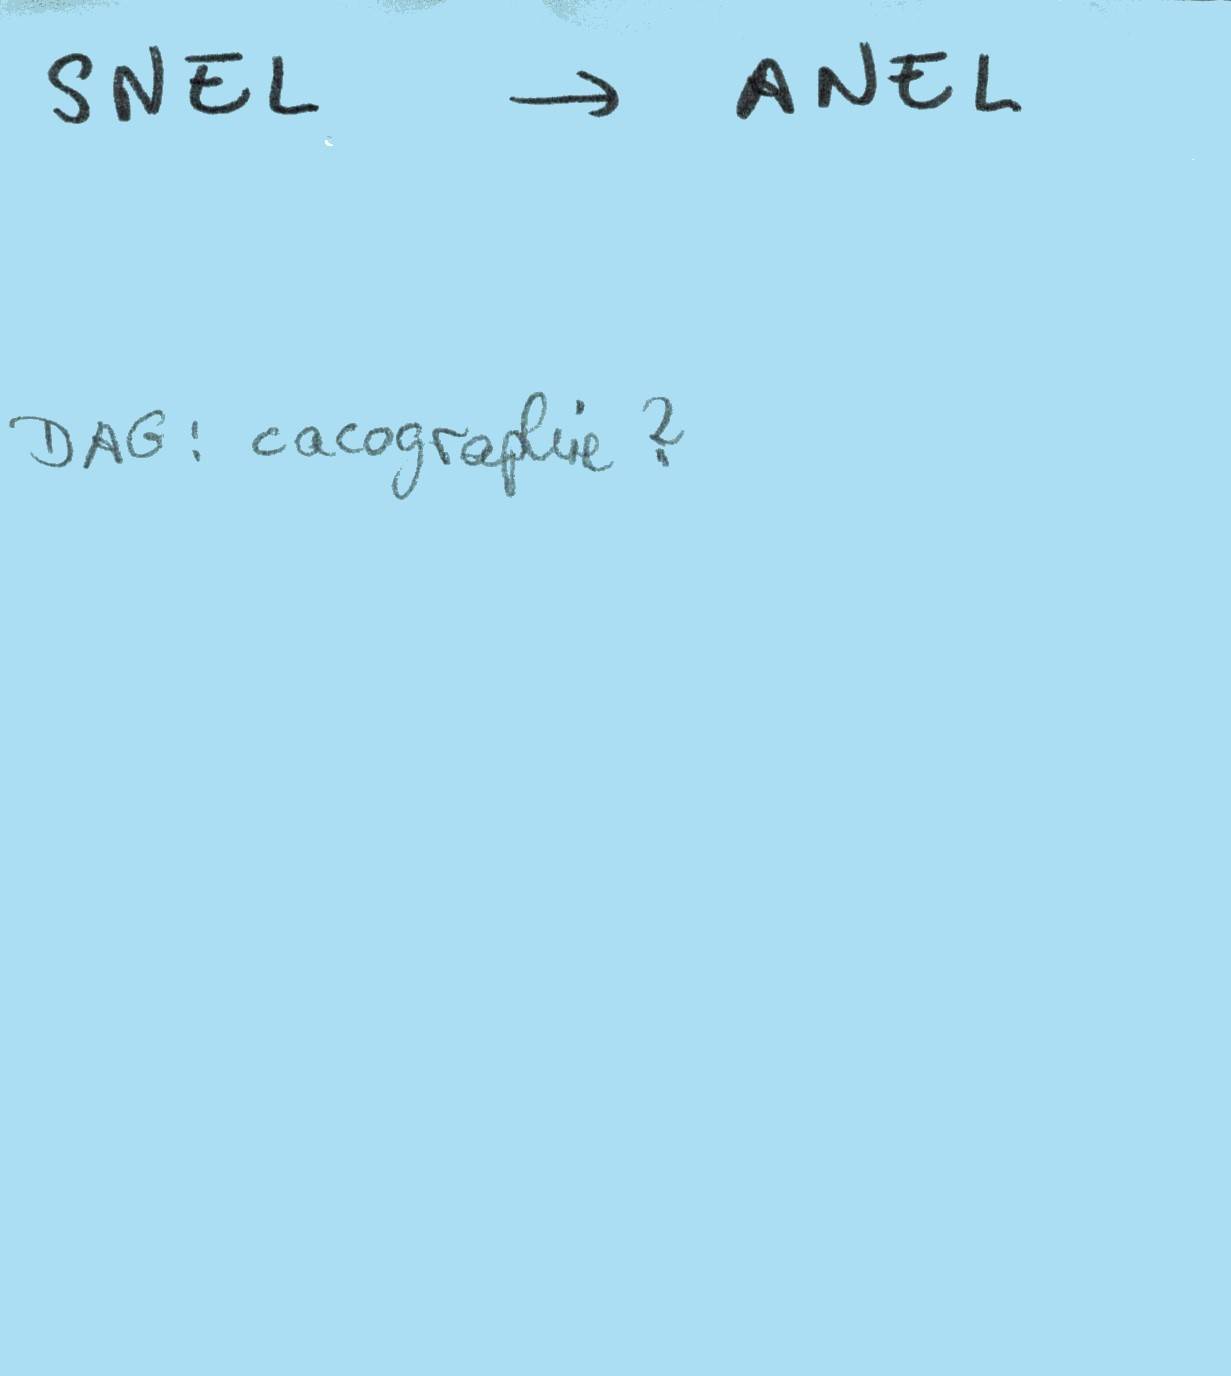 SNEL → ANEL
DAG: cacographie ?